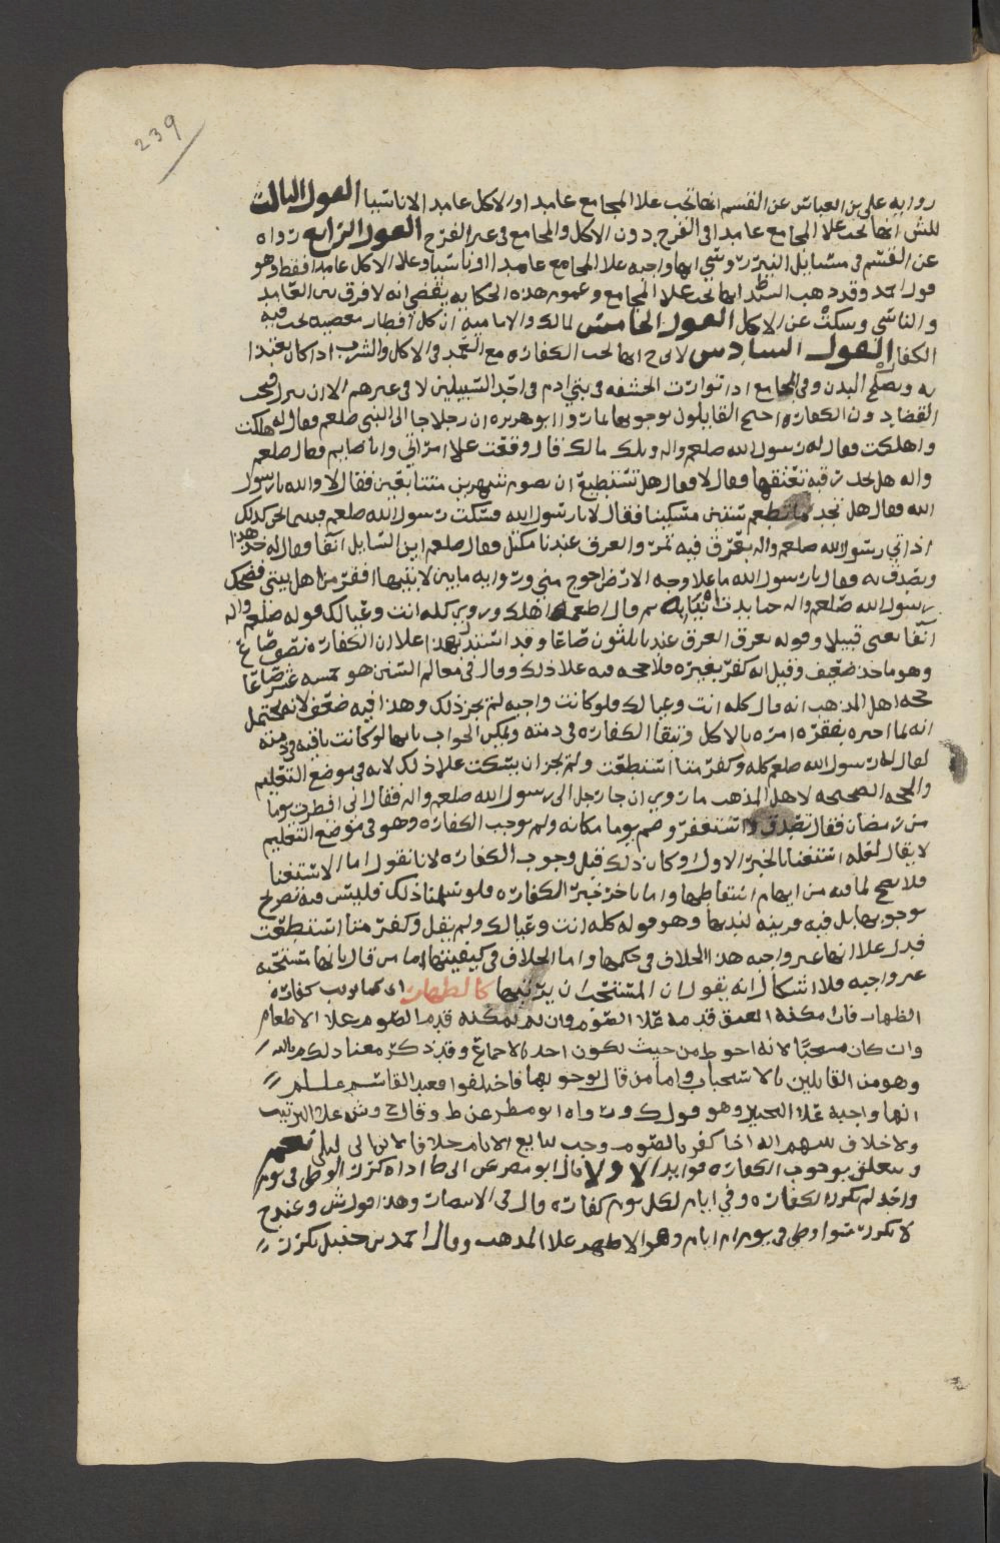 239
روايه علي بن العباس عن القسم انها تجب علا المجامع عامدا اولاكل عامدا لاناسيا القول الثالث
للش انها تجب علا المجامع عامدا في الفرج دون الاكل والمجامع في غير الفرج القول الرابع رواه
عن القسم في مسايل النيروسي انها واجبه علا المجامع عامدا اوناسيا وعلا الاكل عامدا فقط وهو
قول احمد وقد ذهب انها تجب علا المجامع وعموم هذه الحكايه يقضي انه لا فرق بين العامد
والناسي وسكت عن الاكل القول الخامس لمالك والاماميه ان كل افطار معصيه تجب فيه
الكفاره القول السادس انها تجب الكفاره مع التعمد في الاكل والشرب اذا كان يغتذا
به ويصلح البدن وفي الجامع اذا توارت الحشفه في بني ادم في احد السبيلين لا في غيرهم الا ان
القضا دون الكفاره احتج القايلون بوجوبها بما روا ابوهريره ان رجلا جا الى النبي صلعم فقال له هلكت
واهلكت فقال له رسول الله صلعم واله ويلك مالك قال وقعت علا امراتي وانا صايم فقال صلعم
واله هل تجد رقبه تعتقها فقال لا فقال هل تستطيع ان تصوم شهرين متتابعين فقال لا والله يا رسول
الله فقال هل تجد ما تطعم ستين مسكينا فقال لا يا رسول الله فسكت رسول الله صلعم فبينما نحن كذلك
اذ اتي رسول الله صلعم واله بعرق فيه تمر والعرق عندنا مكتل فقال صلعم اين السايل آنفا فقال له خذ هذا
وتصدق به فقال يا رسول الله ما علا وجه الارض احوج مني وروايه ما بين لابتيها افقر من اهل بيتي فضحك
رسول الله صلعم واله حتا بدت انيابه ثم قال اطعمه اهلك وروي كله انت وعيالك قوله صلعم واله
آنفا يعني قبيلا وقوله بعرق العرق عندنا ثلثون صاعا وقد استدل بهذا علا ان الكفاره نصف صاع
وهو ماخذ ضعيف وقيل انه كفر بغيره فلا حجه فيه علا ذلك وقال في معالم السنن هو خمسه عشر صاعا
حجه اهل المذهب انه قال كله انت وعيالك فلو كانت واجبه لم يجز ذلك وهذا فيه ضعف لانه يحتمل
انه لما اخبره بفقره امره بالاكل وتبقا الكفاره في ذمته ويمكن الجواب بانها لو كانت باقيه في ذمته
لقال له رسول الله صلعم كله وكفر متا استطعت ولم يجز ان يسكت علا ذلك لانه في موضع التعليم
والحجه الصحيحه لاهل المذهب ما روي ان جا رجل الى رسول الله صلعم واله فقال اني افطرت يوما
من رمضان فقال تصدق واستغفر وصم يوما مكانه ولم يوجب الكفاره وهو في موضع التعليم
لا يقال لعله استغنا بالخبر الاول او كان ذلك قبل وجوب الكفاره لانا نقول اما الاستغنا
فلا يصح لما فيه من ايهام اسقاطها واما تاخر خبر الكفاره فلو سلمنا ذلك فليس فيه تصريح
بوجوبها بل فيه قرينه لندبها وهو قوله كله انت وعيالك ولم يقل وكفر متا استطعت
فدل علا انها غير واجبه هذا الخلاف في حكمها واما الخلاف في كيفيتها اما من قال بانها مستحبه
غير واجبه فلا اشكال انه يقول ان المستحب ان يرتبها كالظهار اي كما يرتب كفاره
الظهار فان امكنه العتق قدمه علا الصوم وان لم يمكنه قدم الصوم علا الاطعام
وان كان مستحبا لانه احوط من حيث يكون اخذ بالاجماع وقد ذكر معنا ذلك
وهو من القايلين بالاستحباب واما من قال بوجوبها فاختلفوا فعند القاسم علىلم
انها واجبه علا التخيير وهو قول ك ورواه ابو مضر عن ط وقال ح وش علا الترتيب
ولا خلاف بينهم انه اذا كفر بالصوم وجب تتابع الايام خلافا لابن ابي ليلى نعم
ويتعلق بوجوب الكفاره فوايد الاولا قال ابو مضر عن ابي طا اذا كرر الوطي في يوم
واحد لم تكرر الكفاره وفي ايام لكل يوم كفاره قال في الانتصار وهذا قول ش وعند ح
لا تكرر سوا وطي في يوم ام ايام وهو الاظهر علا المذهب وقال احمد بن حنبل تكرر